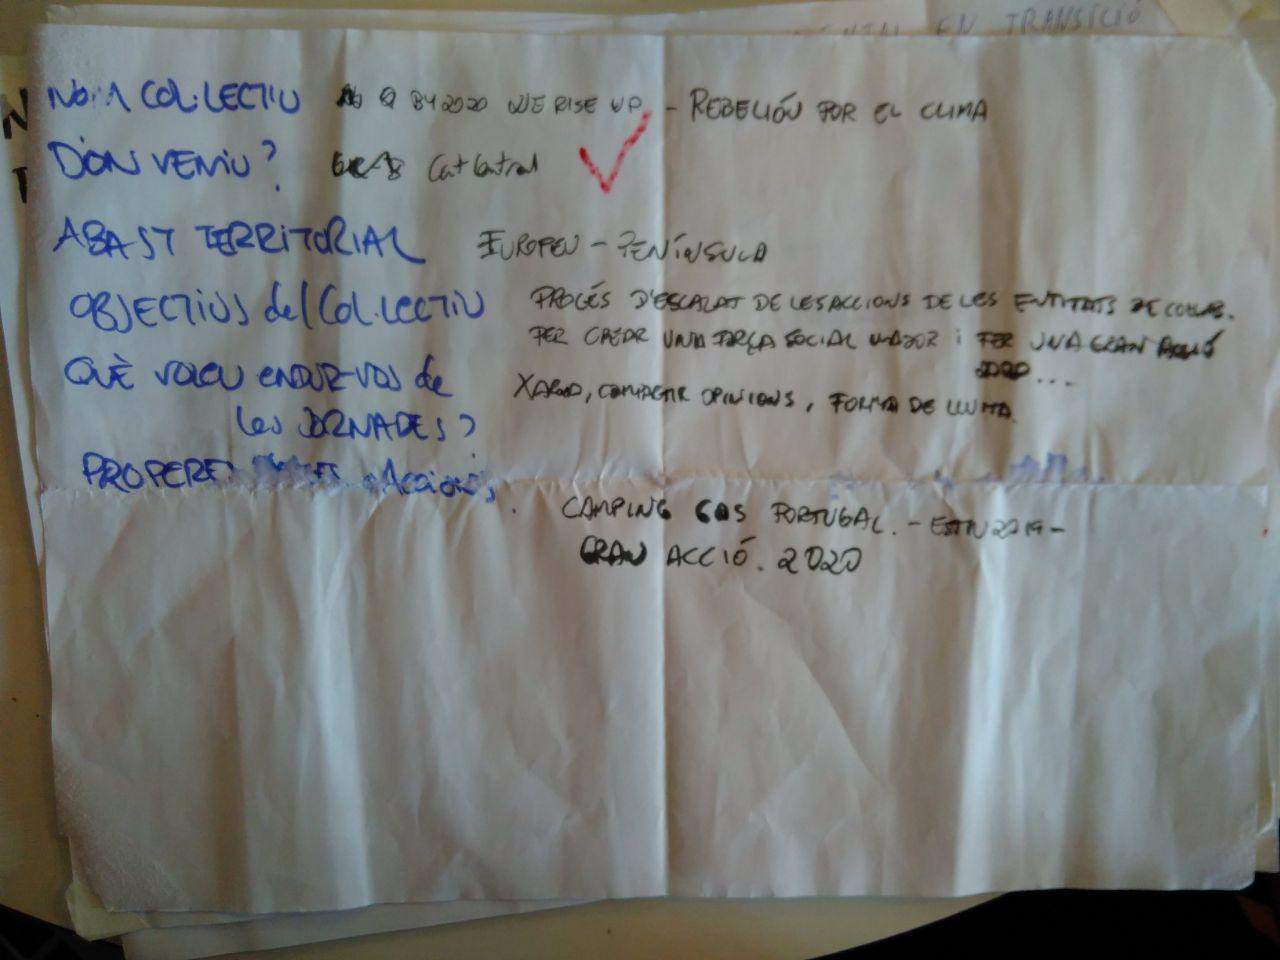 EN TRANSICIÓ
NOM COL·LECTIU @ BY2020 WE RISE UP - REBELIÓN POR EL CLIMA
D'ON VENIU? Cat Central
ABAST TERRITORIAL EUROPEU - PENÍNSULA
OBJECTIUS del COL·LECTIU PROCÉS D'ESCALAT DE LES ACCIONS DE LES ENTITATS DE
PER CREAR UNA FORÇA SOCIAL MAJOR i FER UNA GRAN ACCIÓ
2020 ...
QUÈ VOLEU ENDUR-VOS de XARXA, COMPARTIR OPINIONS, FORMA DE LLUITA.
les JORNADES?
PROPERES Accions.
CAMPING GAS PORTUGAL. - 2019 -
GRAN ACCIÓ. 2020